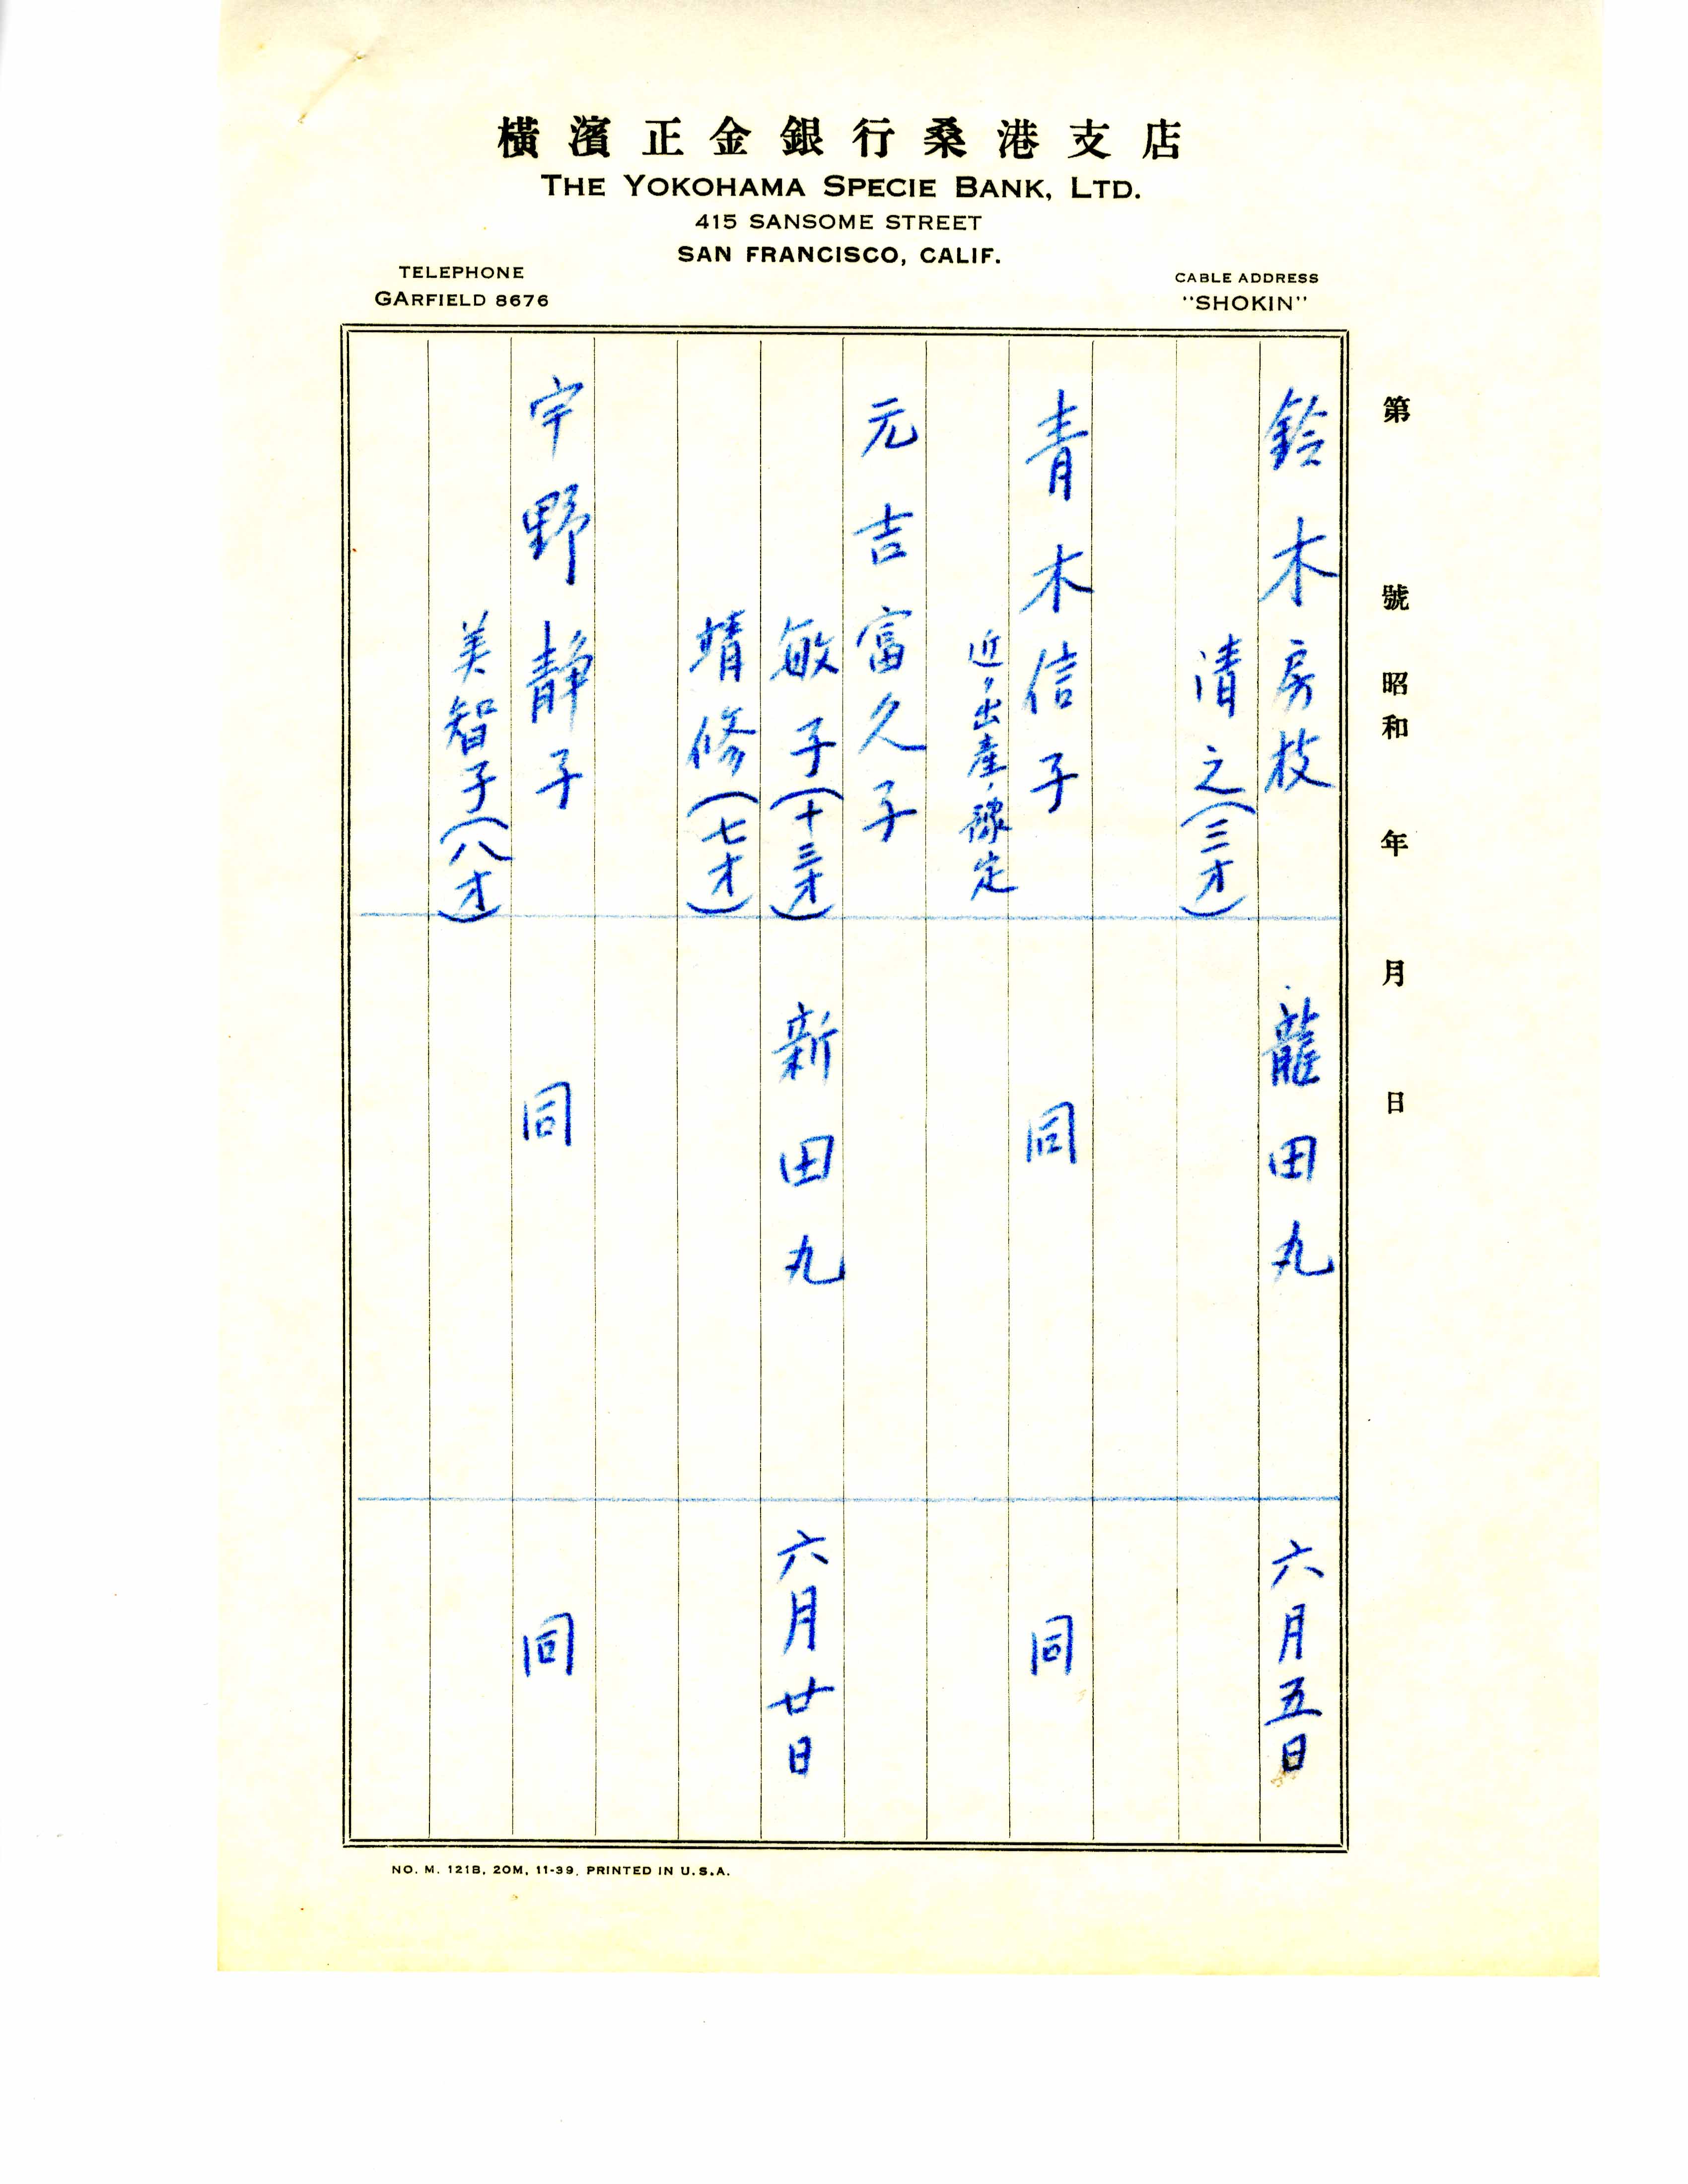 橫濱正金銀行桑港支店
THE YOKOHAMA SPECIE BANK, LTD.
415 SANSOME STREET
SAN FRANCISCO, CALIF.
TELEPHONE
GARFIELD 8676
CABLE ADDRESS
"SHOKIN"
第 號 昭和 年 月 日
鈴木房枝 龍田丸 六月五日
清之(三才)
青木信子 同 同
近々出産ノ豫定
元吉富久子
敏子(十三才) 新田丸 六月廿日
靖修(七才)
宇野静子 同 同
美智子(八才)
NO. M. 121B, 20M, 11-39, PRINTED IN U.S.A.